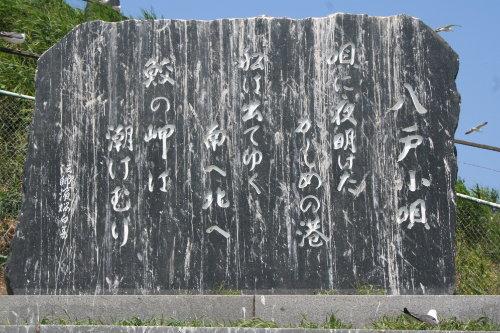 八戸小唄
唄に夜明けた
かもめの港
船は出てゆく
南へ北へ
鮫の岬は
潮けむり